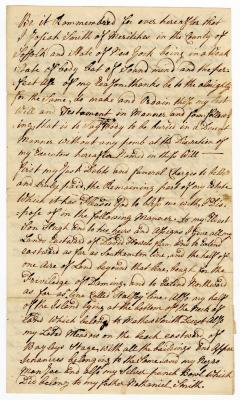 Be it Rememmered for ever hereafter that
I Josiah Smith of Moriches in the County of
Suffolk and State of New York being in a weak
state of body but of sound mind and the per-
fect use of my Reason thanks be to the almighty
for the Same, do make and Ordain this my last
Will and Testament in Manner and form follow
ing, that is to say my Body to be buried in a Decent
Manner without any pomp at the Discretion of
my Executors hereafter Named in this Will
First my Just Debts and funeral Charges to be fully
and truly paid, the Remaining part of my Estate
Which it has Pleased God to bless me with I Dis-
pose of in the following Manner. To my Eldest
Son Hugh and to his heirs and Assigns I give all my
Lands Eastward of David Howels farm and to Extend
eastward as far as Southamton line and the half of
one acre of Land beyond that line, bought for the
Priviledge of Daming, and to Extend Northward
as far as line Called Halfway line. Also my half
of the Island lying at the bottom of the Neck of
Land which belongs to Nathaniel. Also all
my Land Meadow on the beach eastward of
Bayleys Stage, with all the buildings and Appur-
tenances belonging to the Same, and my Negro
Man Jae and also my Silver punch Bowl Which
Did belong to my father Nathaniel Smith.